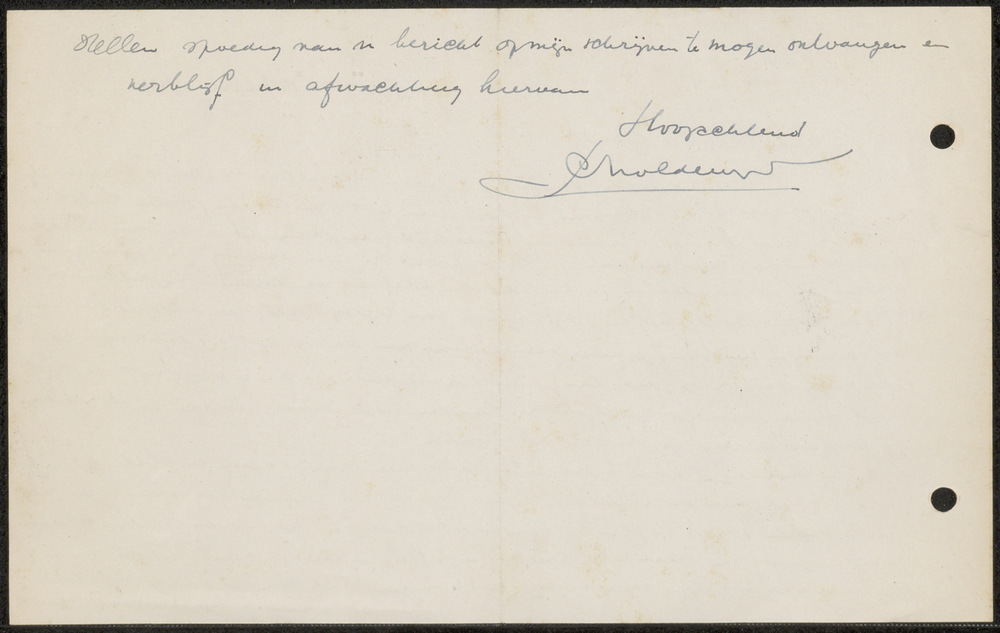 stellen spoedig van u bericht op mijn schrijven te mogen ontvangen en
verblijf in afwachting hiervan
Hoogachtend